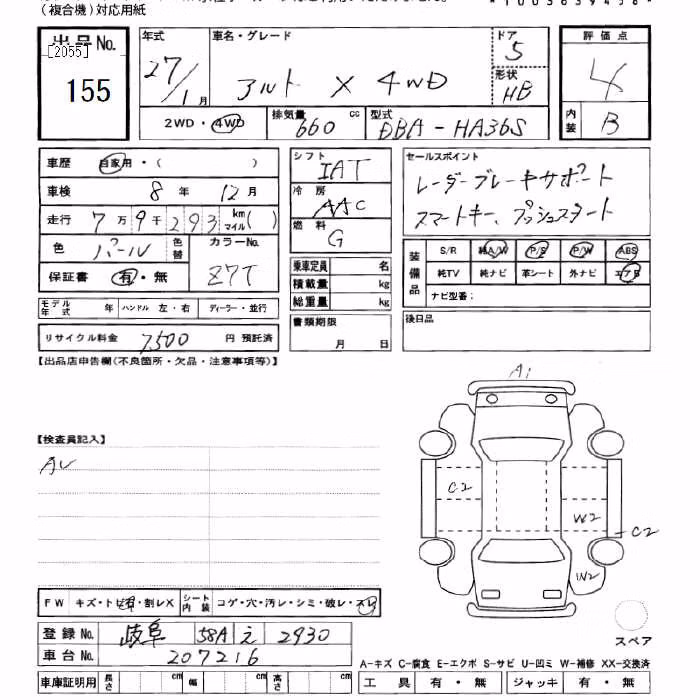 (複合機)対応用紙
出品No.
[2055]
155
年式
27/1月
車名・グレード
アルト X 4WD
ドア
5
形状
HB
評価点
4
内装
B
2WD・4WD
排気量
660 cc
型式
DBA-HA36S
車歴 自家用・( )
車検 8年 12月
走行 7万9千293 km マイル( )
色 パール 色替
カラーNo.
Z7T
保証書 有・無
モデル年式 年 ハンドル 左・右 ディーラー・並行
リサイクル料金 7500 円 預託済
シフト
IAT
冷房
AAC
燃料
G
乗車定員 名
積載量 kg
総重量 kg
書類期限
月 日
セールスポイント
レーダーブレーキサポート
スマートキー、プッシュスタート
装備品
S/R 純A/W P/S P/W ABS
純TV 純ナビ 革シート 外ナビ エアB
ナビ型番:
後日品
【出品店申告欄(不良箇所・欠品・注意事項等)】
【検査員記入】
AU
A1
C2
W2
C2
W2
スペア
FW キズ・トビ有・割レX シート内装 コゲ・穴・汚レ・シミ・破レ・スレ
登録No. 岐阜 58A え 2930
車台No. 207216
車庫証明用 長さ cm 幅 cm 高さ cm
A-キズ C-腐食 E-エクボ S-サビ U-凹ミ W-補修 XX-交換済
工具 有・無 ジャッキ 有・無